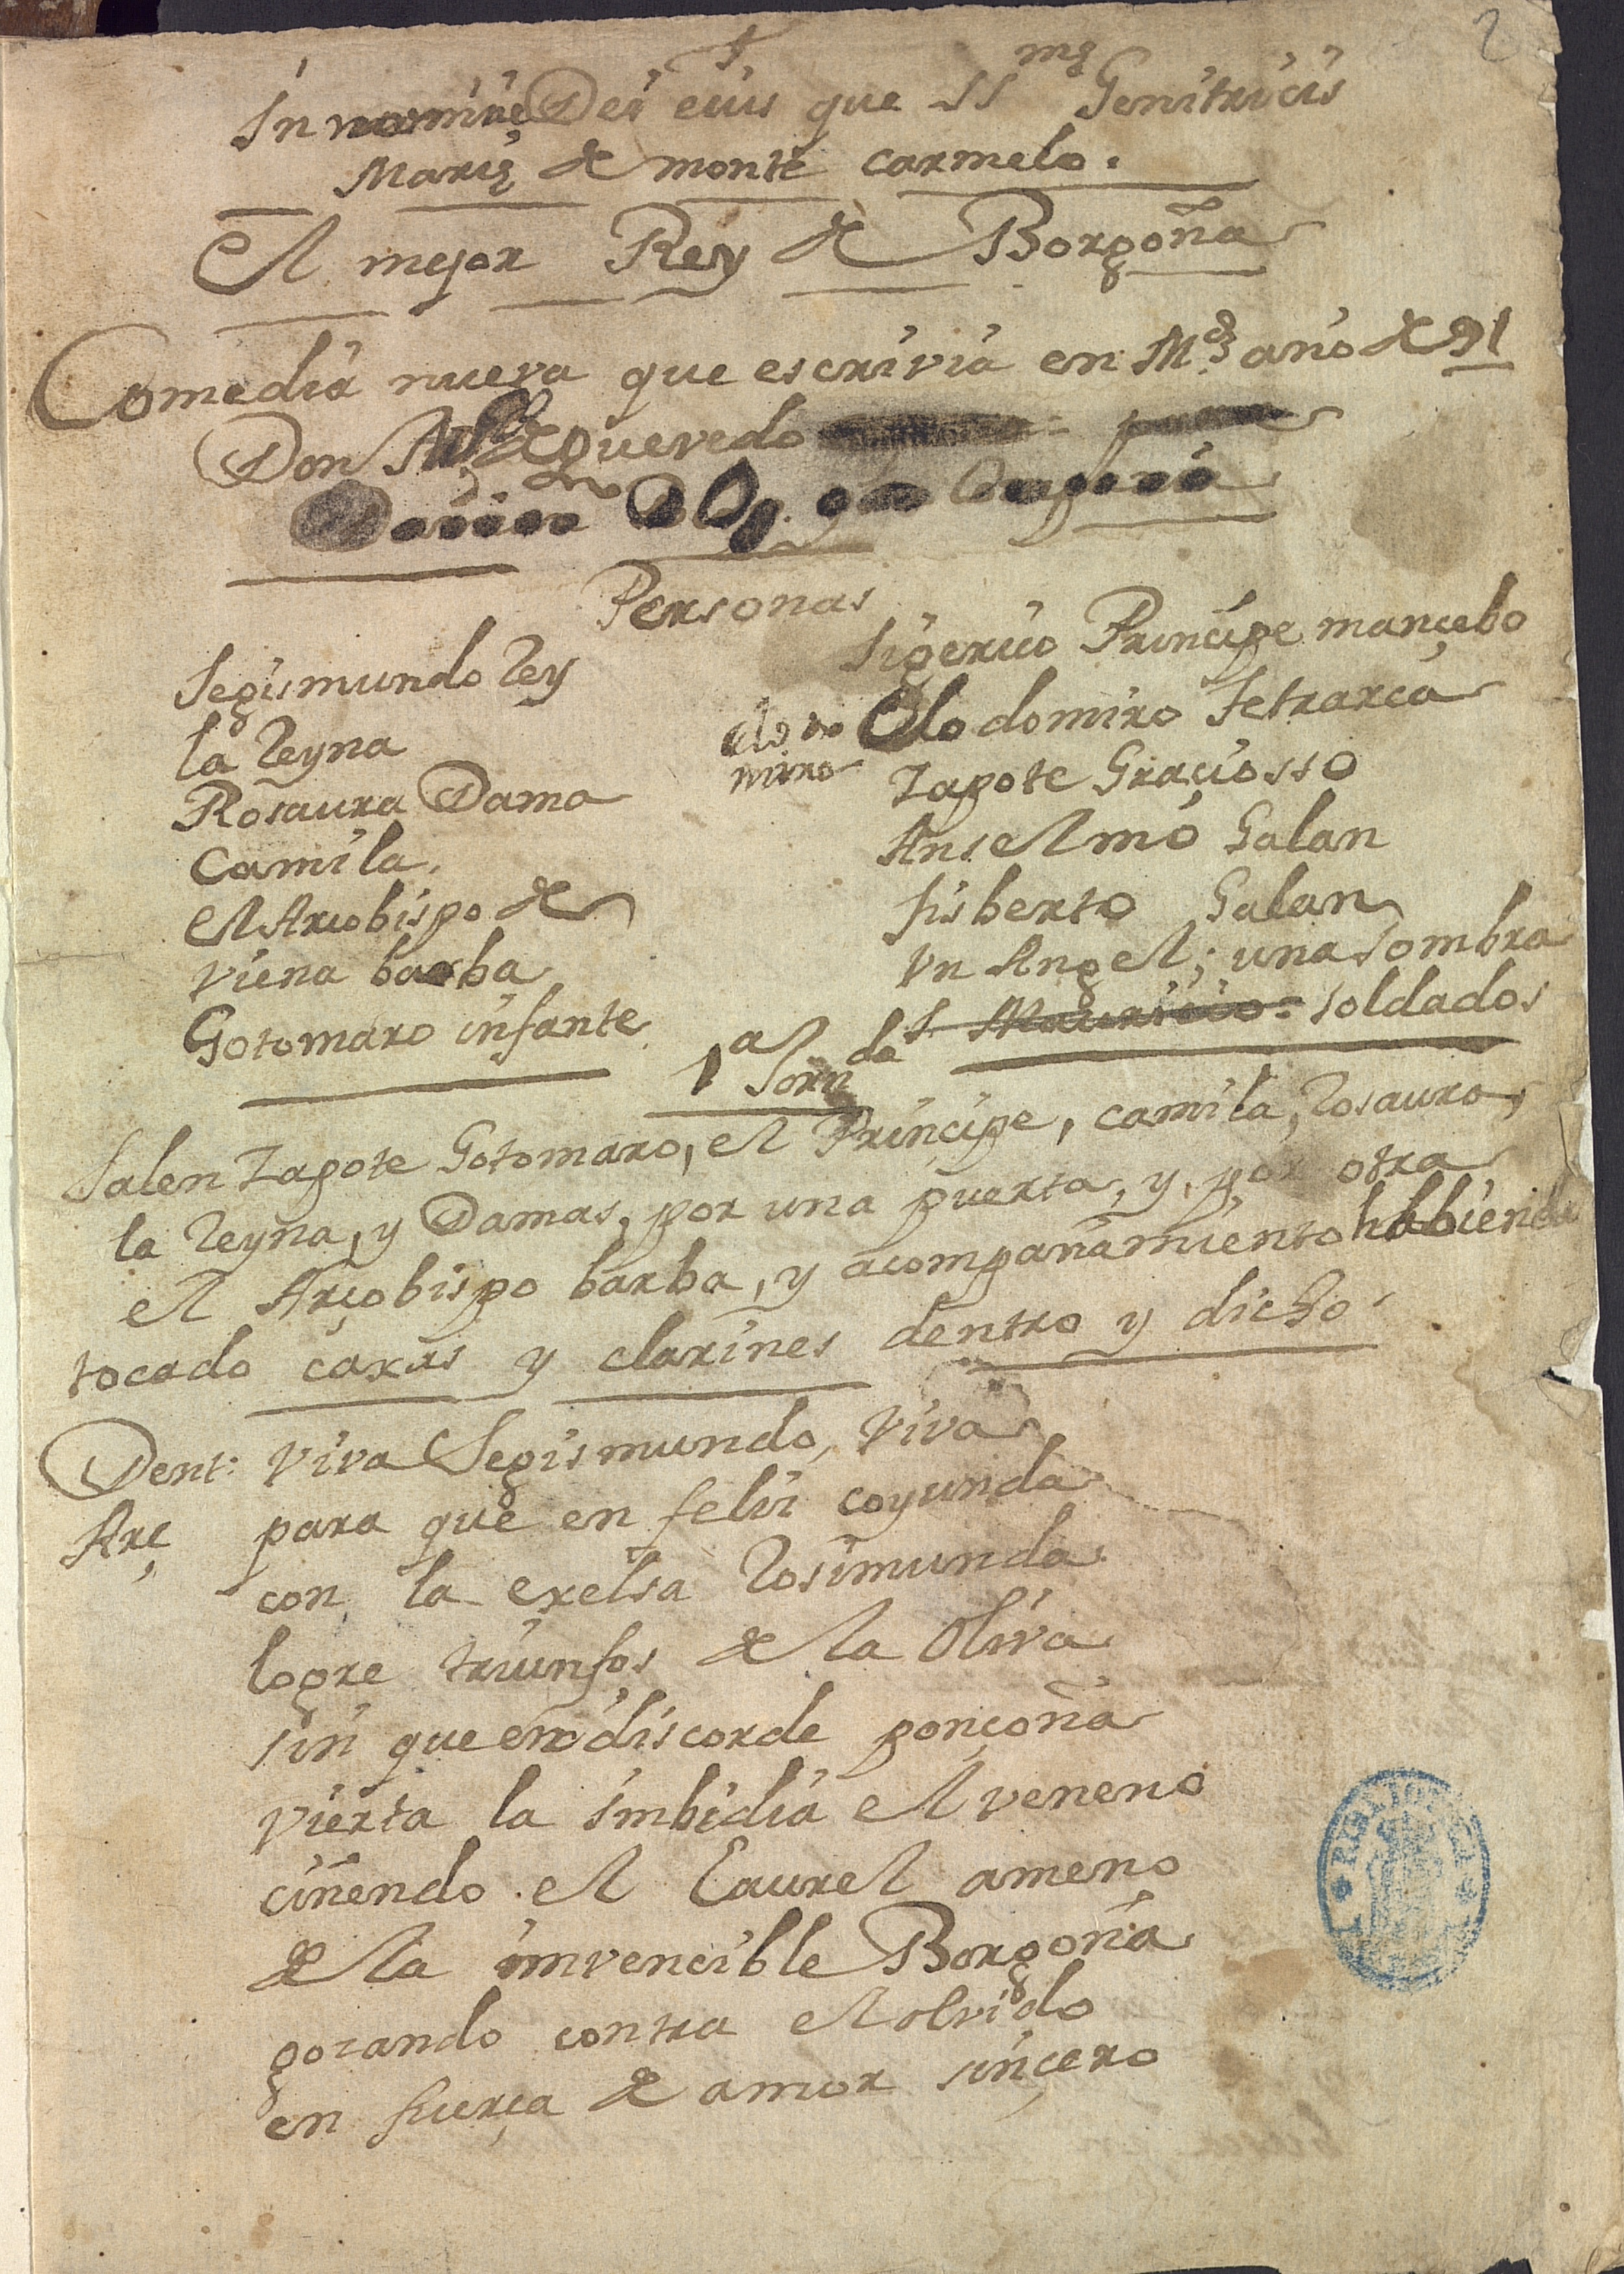 2
In nomine Dei eius que SSmę Genitricis
Marię de monte Carmelo.
El mejor Rey de Borgoña
Comedia nueva que escrivia en Md año de 91
Don de Quevedo
Personas
Segismundo Rey
la Reyna
Rosaura Dama
Camila.
El Arçobispo de
Viena barba
Gotomaro infante
Sigerico Principe mançebo
Clodomiro Clodomiro Tetrarca
Zapote Graciosso
Anselmo Galan
Fisberto Galan
Vn Angel; una sombra
S. Mauricio = soldados
1a Jornda
Salen Zapote Gotomaro, el Principe, Camila, Rosaura,
la Reyna, y Damas, por una puerta, y, por otra
el Arçobispo barba, y acompañamiento habiendo
tocado caxas y clarines dentro y dicho
Dent: Viva Segismundo, Viva
Arç para que en felix coyunda
con la exelsa Rosimunda
logre triunfos de la Oliva
sin que en discorde ponçoña
vierta la imbidia el veneno
ciñendo el Laurel ameno
de la imvencible Borgoña
gozando contra el olvido
en fuerça de amor sinçero
BIBLIOTECA